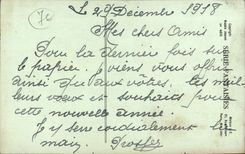 7c
Le 29 Décembre 1918
Mes chers Amis
Pour la dernière fois sur
le papier. Je viens vous offrir
ainsi qu'aux votres. les meil-
leurs voeux et souhaits pour
cette nouvelle année.
Je y serre cordialement les
mains